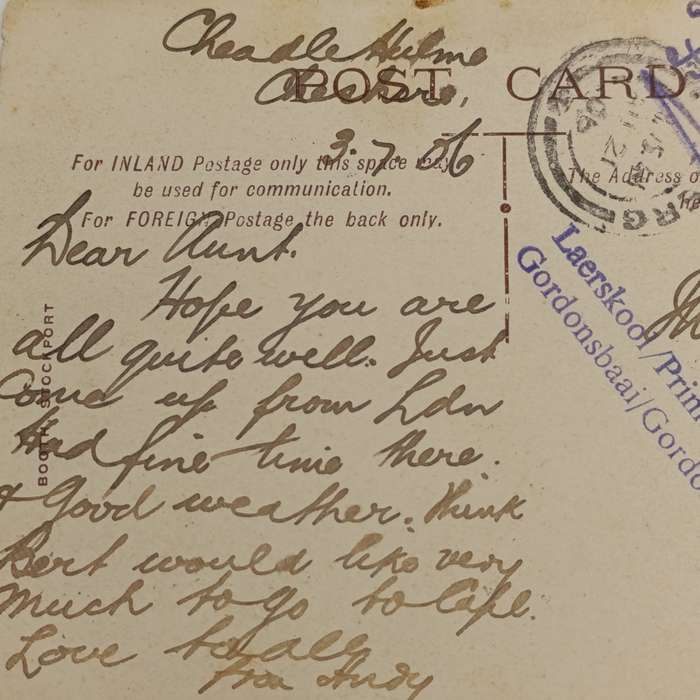 Cheadle Hulme
Cheshire,
POST CARD
3.7.06
For INLAND Postage only this space may
be used for communication.
For FOREIGN Postage the back only.
The Address o
he
Dear Aunt.
Hope you are
all quite well. Just
Come up from Ldn
Had fine time there.
& Good weather. Think
Bert would like very
Much to go to Cape.
Love to all
from Andy
BOOTH, STOCKPORT
Laerskool/Prim
Gordonsbaai/Gordo